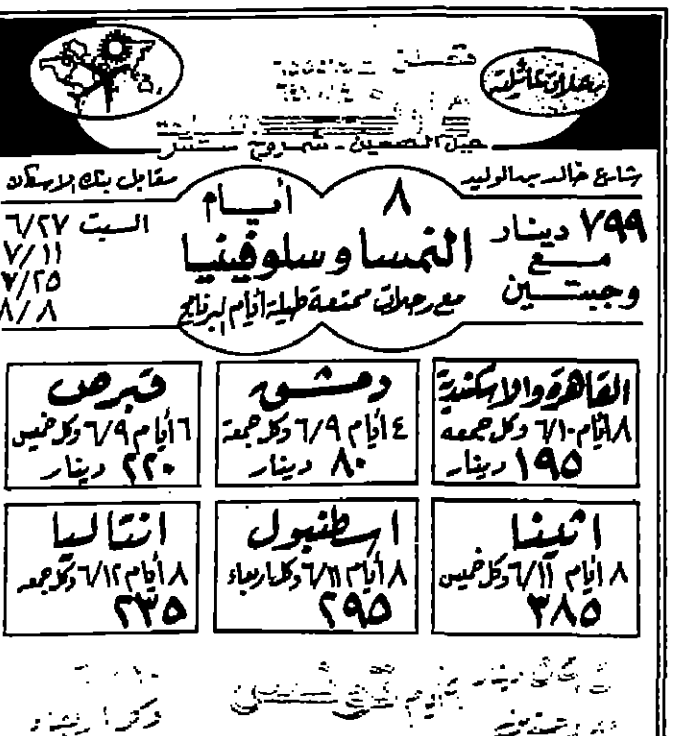 رحلات عائلية
شارع خالد بن الوليد
مقابل بنك الاسكان
٨ أيام
النمسا وسلوفينيا
مع رحلات ممتعة طيلة أيام البرنامج
٧٩٩ دينار
مع
وجبتين
السبت ٦/٢٧
٧/١١
٧/٢٥
٨/٨
القاهرة والاسكندرية
٨ أيام ٦/١٠ وكل جمعه
١٩٥ دينار
دمشق
٤ أيام ٦/٩ وكل جمعة
٨٠ دينار
قبرص
٦ أيام ٦/٩ وكل خميس
٢٢٠ دينار
اثينا
٨ أيام ٦/١١ وكل خميس
٣٨٥
اسطنبول
٨ أيام ٦/١١ وكل اربعاء
٢٩٥
انتاليا
٨ أيام ٦/١٢ وكل جمعه
٢٣٥